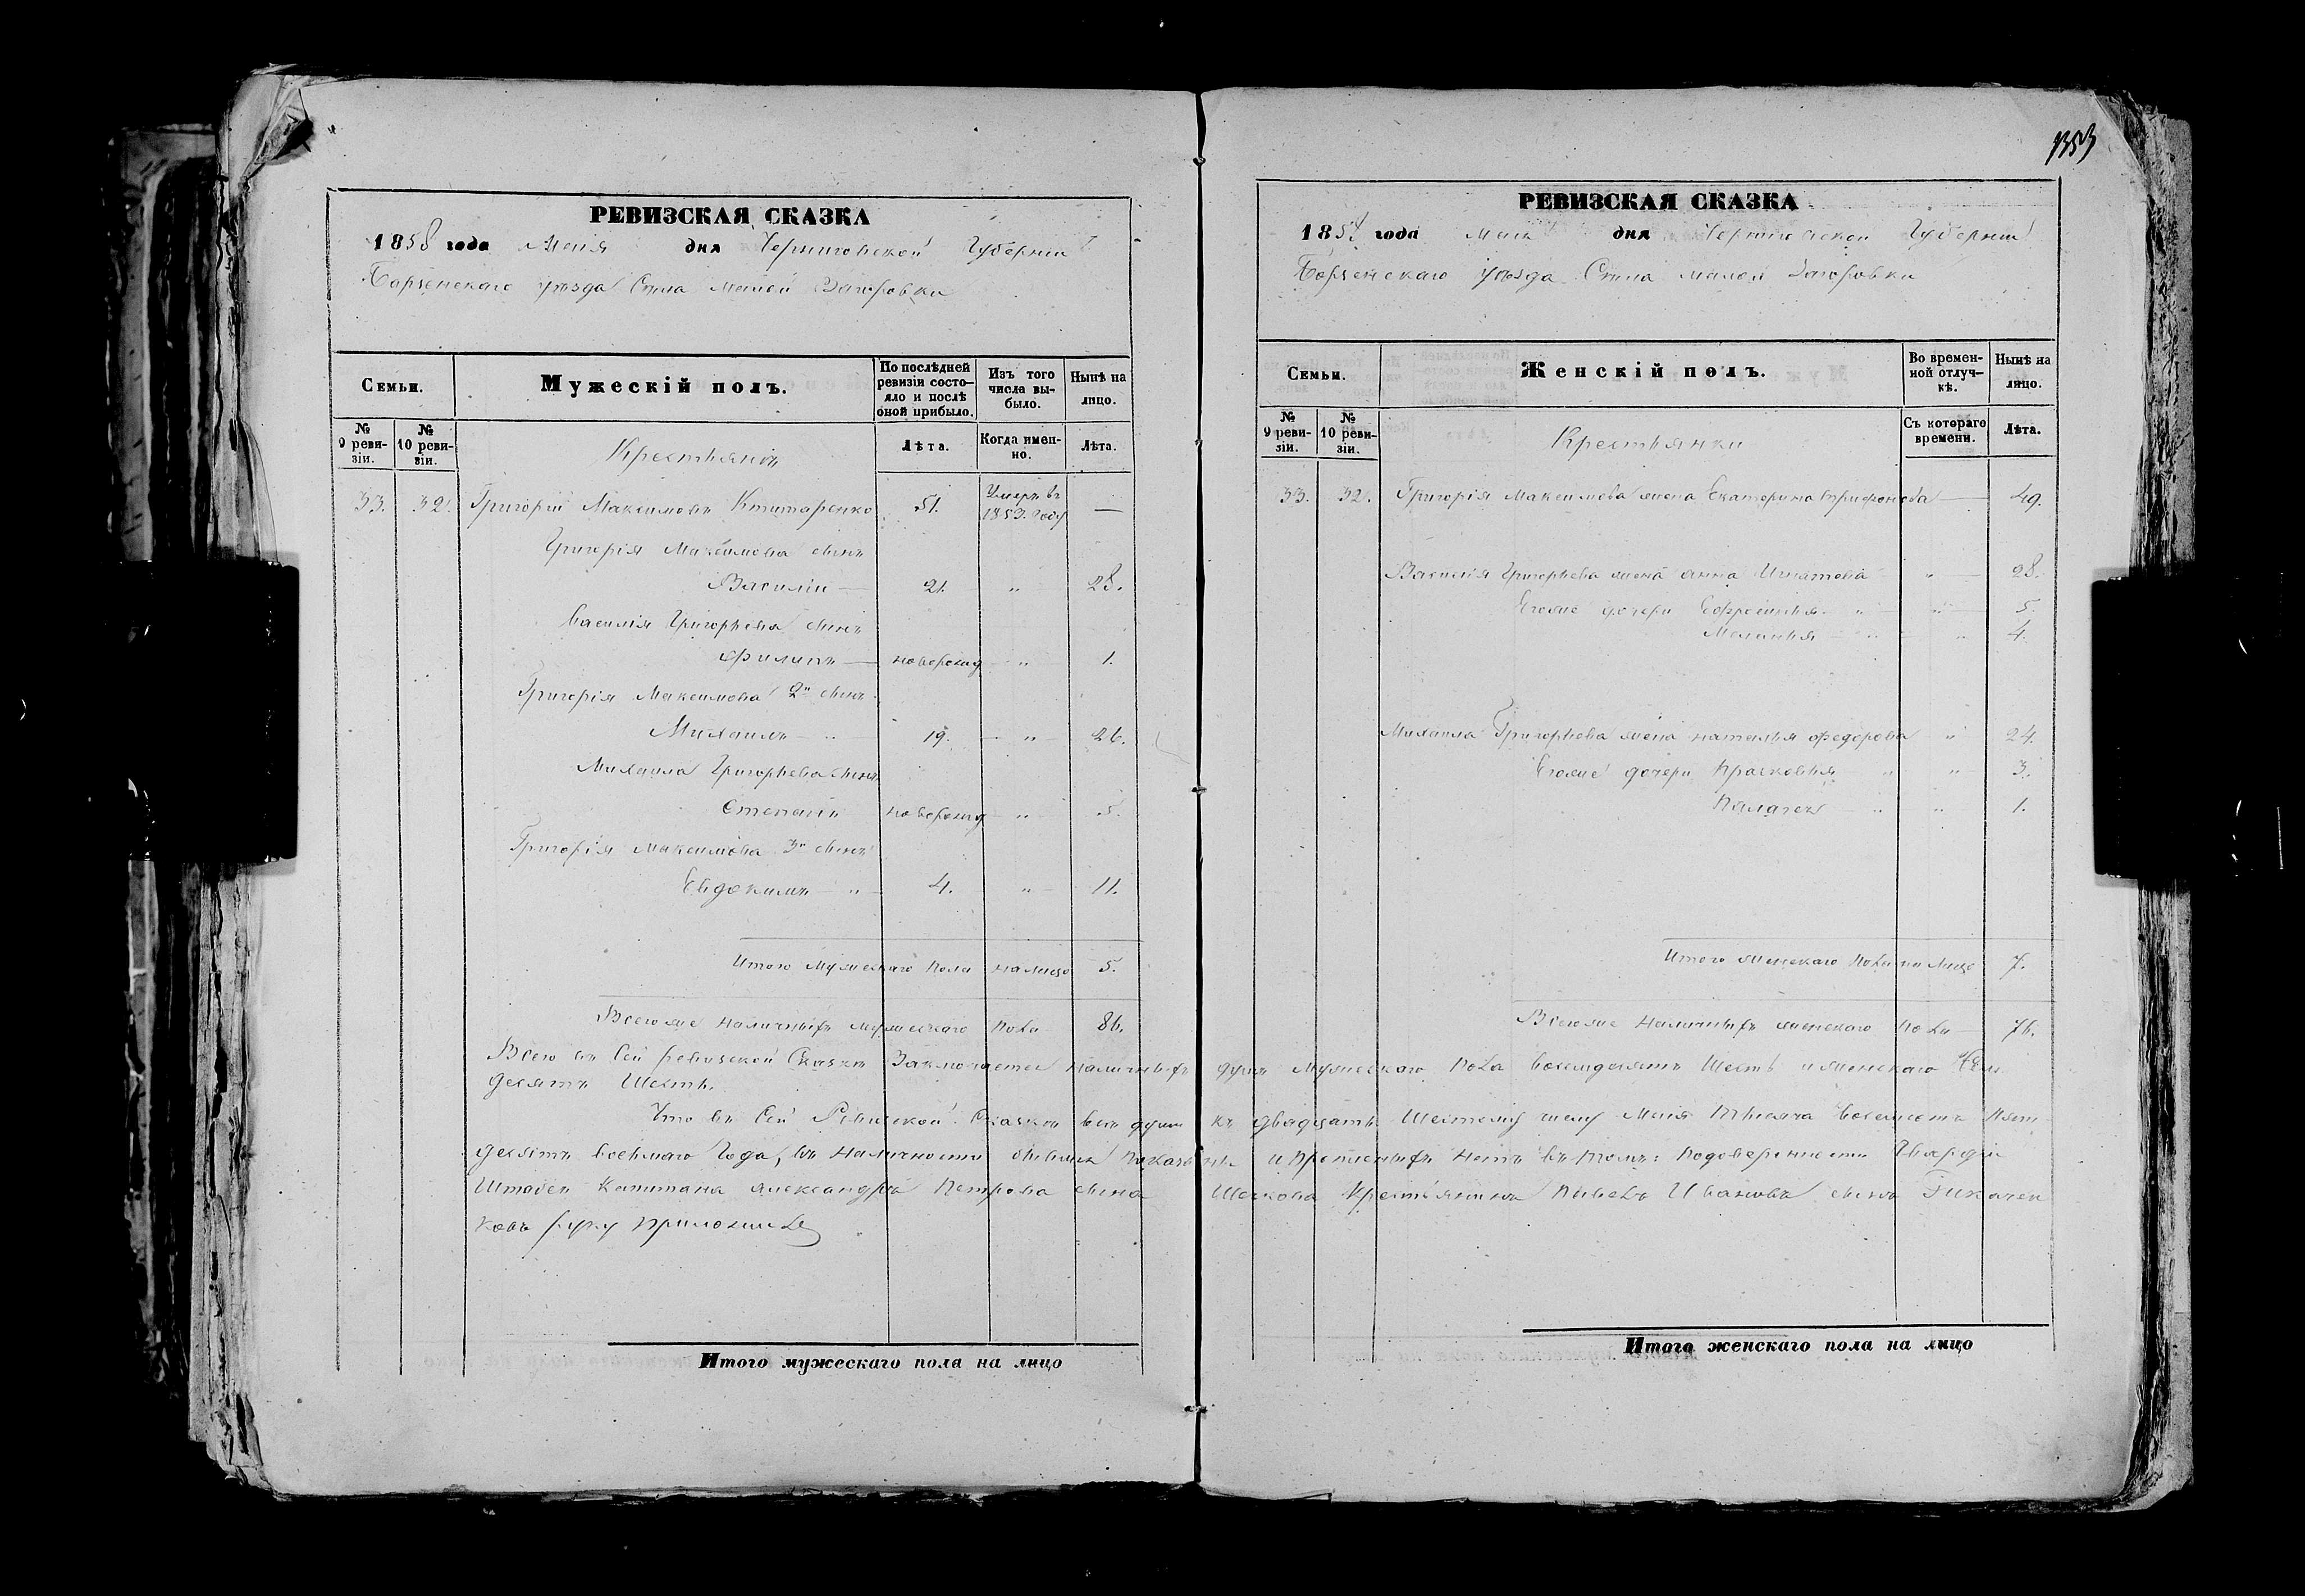 1353
РЕВИЗСКАЯ СКАЗКА
1858 года Маія дня Черниговской Губерніи
Борзенскаго уѣзда Села малой Загоровки
Семьи.
Мужескій полъ.
По послѣдней ревизіи состояло и послѣ оной прибыло.
Изъ того числа выбыло.
Нынѣ на лицо.
№ 9 ревизіи.
№ 10 ревизіи.
Крестьянъ
Лѣта.
Когда именно.
Лѣта.
33. 32. Григорій Максимовъ Ктитаренко 51. Умеръ въ 1853. году —
Григорія Максимова сынъ
Василій — 21. „ 28.
Василія Григорьева сынъ
Филипъ — новорожд „ 1.
Григорія Максимова 2й сынъ
Михаилъ — „ — 19. — „ — 26.
Михаила Григорьева сынъ
Степанъ новорожд — „ — 5.
Григорія Максимова 3й сынъ
Евдокимъ — „ — 4. „ — 11.
Итого Мужескаго пола налицо 5.
Всегоже наличныхъ мужескаго пола 86.
РЕВИЗСКАЯ СКАЗКА
1858 года Маія дня Черниговской Губерніи
Борзенскаго уѣзда Села малой Загоровки
Семьи.
Женскій полъ.
Во временной отлучкѣ.
Нынѣ на лицо.
№ 9 ревизіи.
№ 10 ревизіи.
Крестьянки
Съ котораго времени.
Лѣта.
33. 32. Григорія Максимова жена Екатерина Трифонова — 49.
Василія Григорьева жена Анна Игнатова „ — 28.
Егоже дочери Ефросинья „ — „ — 5.
Маланья — „ — „ 4.
Михаила Григорьева жена наталья Федорова „ 24.
Егоже дочери Прасковья „ „ 3.
Палагея — „ „ 1.
Итого женскаго пола на лицо 7.
Всегоже наличныхъ женскаго пола — 76.
Всего въ Сей ревизской Сказкѣ Заключается наличныхъ душъ мужескаго пола восемдесятъ Шесть и женскаго Сем
десятъ Шесть.
Что въ Сей Ревизской Сказкѣ всѣ души къ двадцать Шестому числу Маія Тысяча восемсотъ пят
десятъ восьмаго Года, въ наличности состоящія показаны и прописныхъ нетъ въ томъ: по доверенности Гвардіи
Штабсъ Капитана Александра Петрова сына Крестьянинъ Павелъ Ивановъ сынъ
ковъ руку приложилъ
Итого мужескаго пола на лицо
Итого женскаго пола на лицо